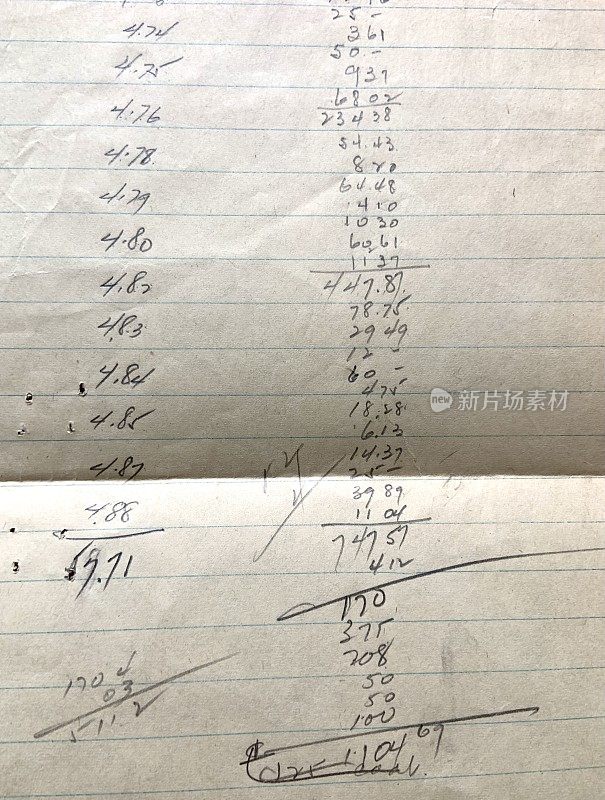 4.74
4.75
4.76
4.78
4.79
4.80
4.82
4.83
4.84
4.85
4.87
4.88
57.71
170
03
25 -
361
50 -
937
6802
23438
54.43
820
64.48
410
1030
60.61
11.37
447.87
78.75
29 49
12 -
60 -
4 75
18.28
6.13
14.37
25 -
39 89
11 04
747 57
4 12
170
375
208
50
50
100
1104 69
new 新片场素材